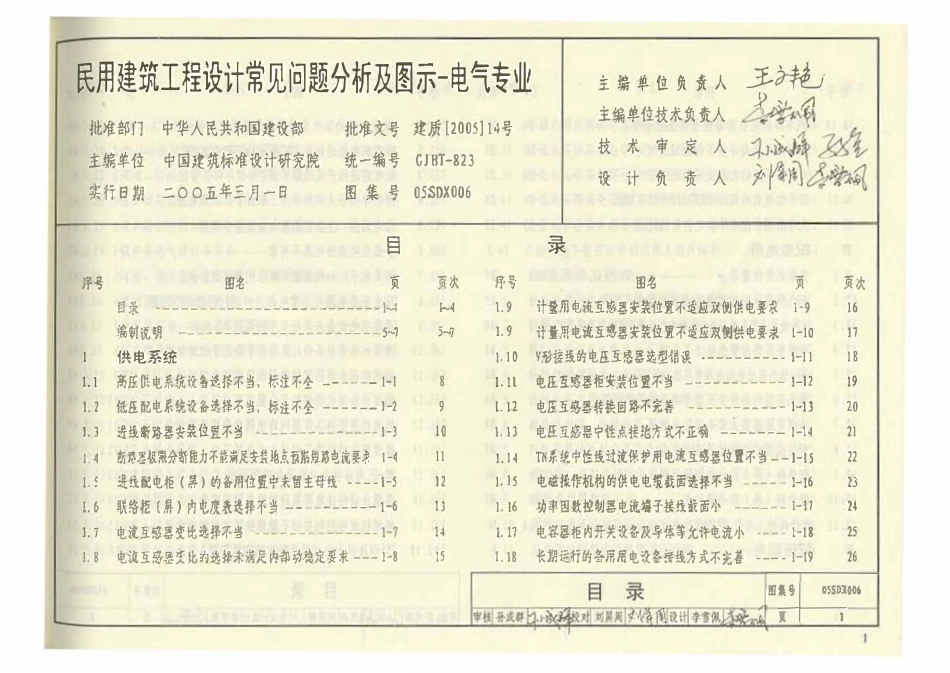 民用建筑工程设计常见问题分析及图示-电气专业
批准部门 中华人民共和国建设部 批准文号 建质[2005]14号
主编单位 中国建筑标准设计研究院 统一编号 GJBT-823
实行日期 二〇〇五年三月一日 图集号 05SDX006
主编单位负责人
主编单位技术负责人
技术审定人
设计负责人
目 录
序号 图名 页 页次
目录 1-4 1-4
编制说明 5-7 5-7
1 供电系统
1.1 高压供电系统设备选择不当、标注不全 1-1 8
1.2 低压配电系统设备选择不当、标注不全 1-2 9
1.3 进线断路器安装位置不当 1-3 10
1.4 断路器极限分断能力不能满足安装地点预期短路电流要求 1-4 11
1.5 进线配电柜(屏)的备用位置中未留主母线 1-5 12
1.6 联络柜(屏)内电度表选择不当 1-6 13
1.7 电流互感器变比选择不当 1-7 14
1.8 电流互感器变化的选择未满足内部动稳定要求 1-8 15
序号 图名 页 页次
1.9 计量用电流互感器安装位置不适应双侧供电要求 1-9 16
1.9 计量用电流互感器安装位置不适应双侧供电要求 1-10 17
1.10 Y形接线的电压互感器选型错误 1-11 18
1.11 电压互感器柜安装位置不当 1-12 19
1.12 电压互感器转换回路不完善 1-13 20
1.13 电压互感器中性点接地方式不正确 1-14 21
1.14 TN系统中性线过流保护用电流互感器位置不当 1-15 22
1.15 电磁操作机构的供电电缆截面选择不当 1-16 23
1.16 功率因数控制器电流端子接线截面小 1-17 24
1.17 电容器柜内开关设备及导体等允许电流小 1-18 25
1.18 长期运行的备用用电设备接线方式不完善 1-19 26
目 录 图集号 05SDX006
审核 孙成群 校对 刘屏周 设计 李雪佩 页 1
1